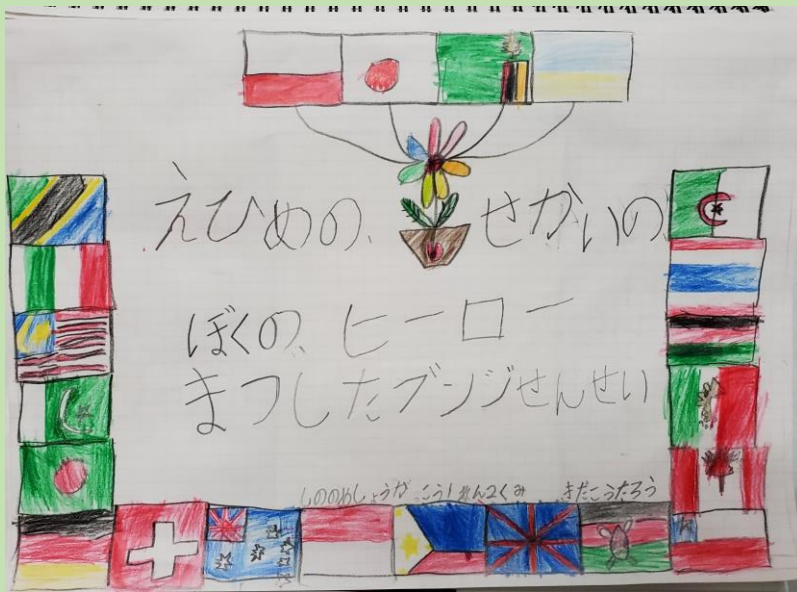 えひめの、せかいの
ぼくの、ヒーロー
まつしたブンジせんせい
しののめしょうがっこう1ねん2くみ きだこうたろう